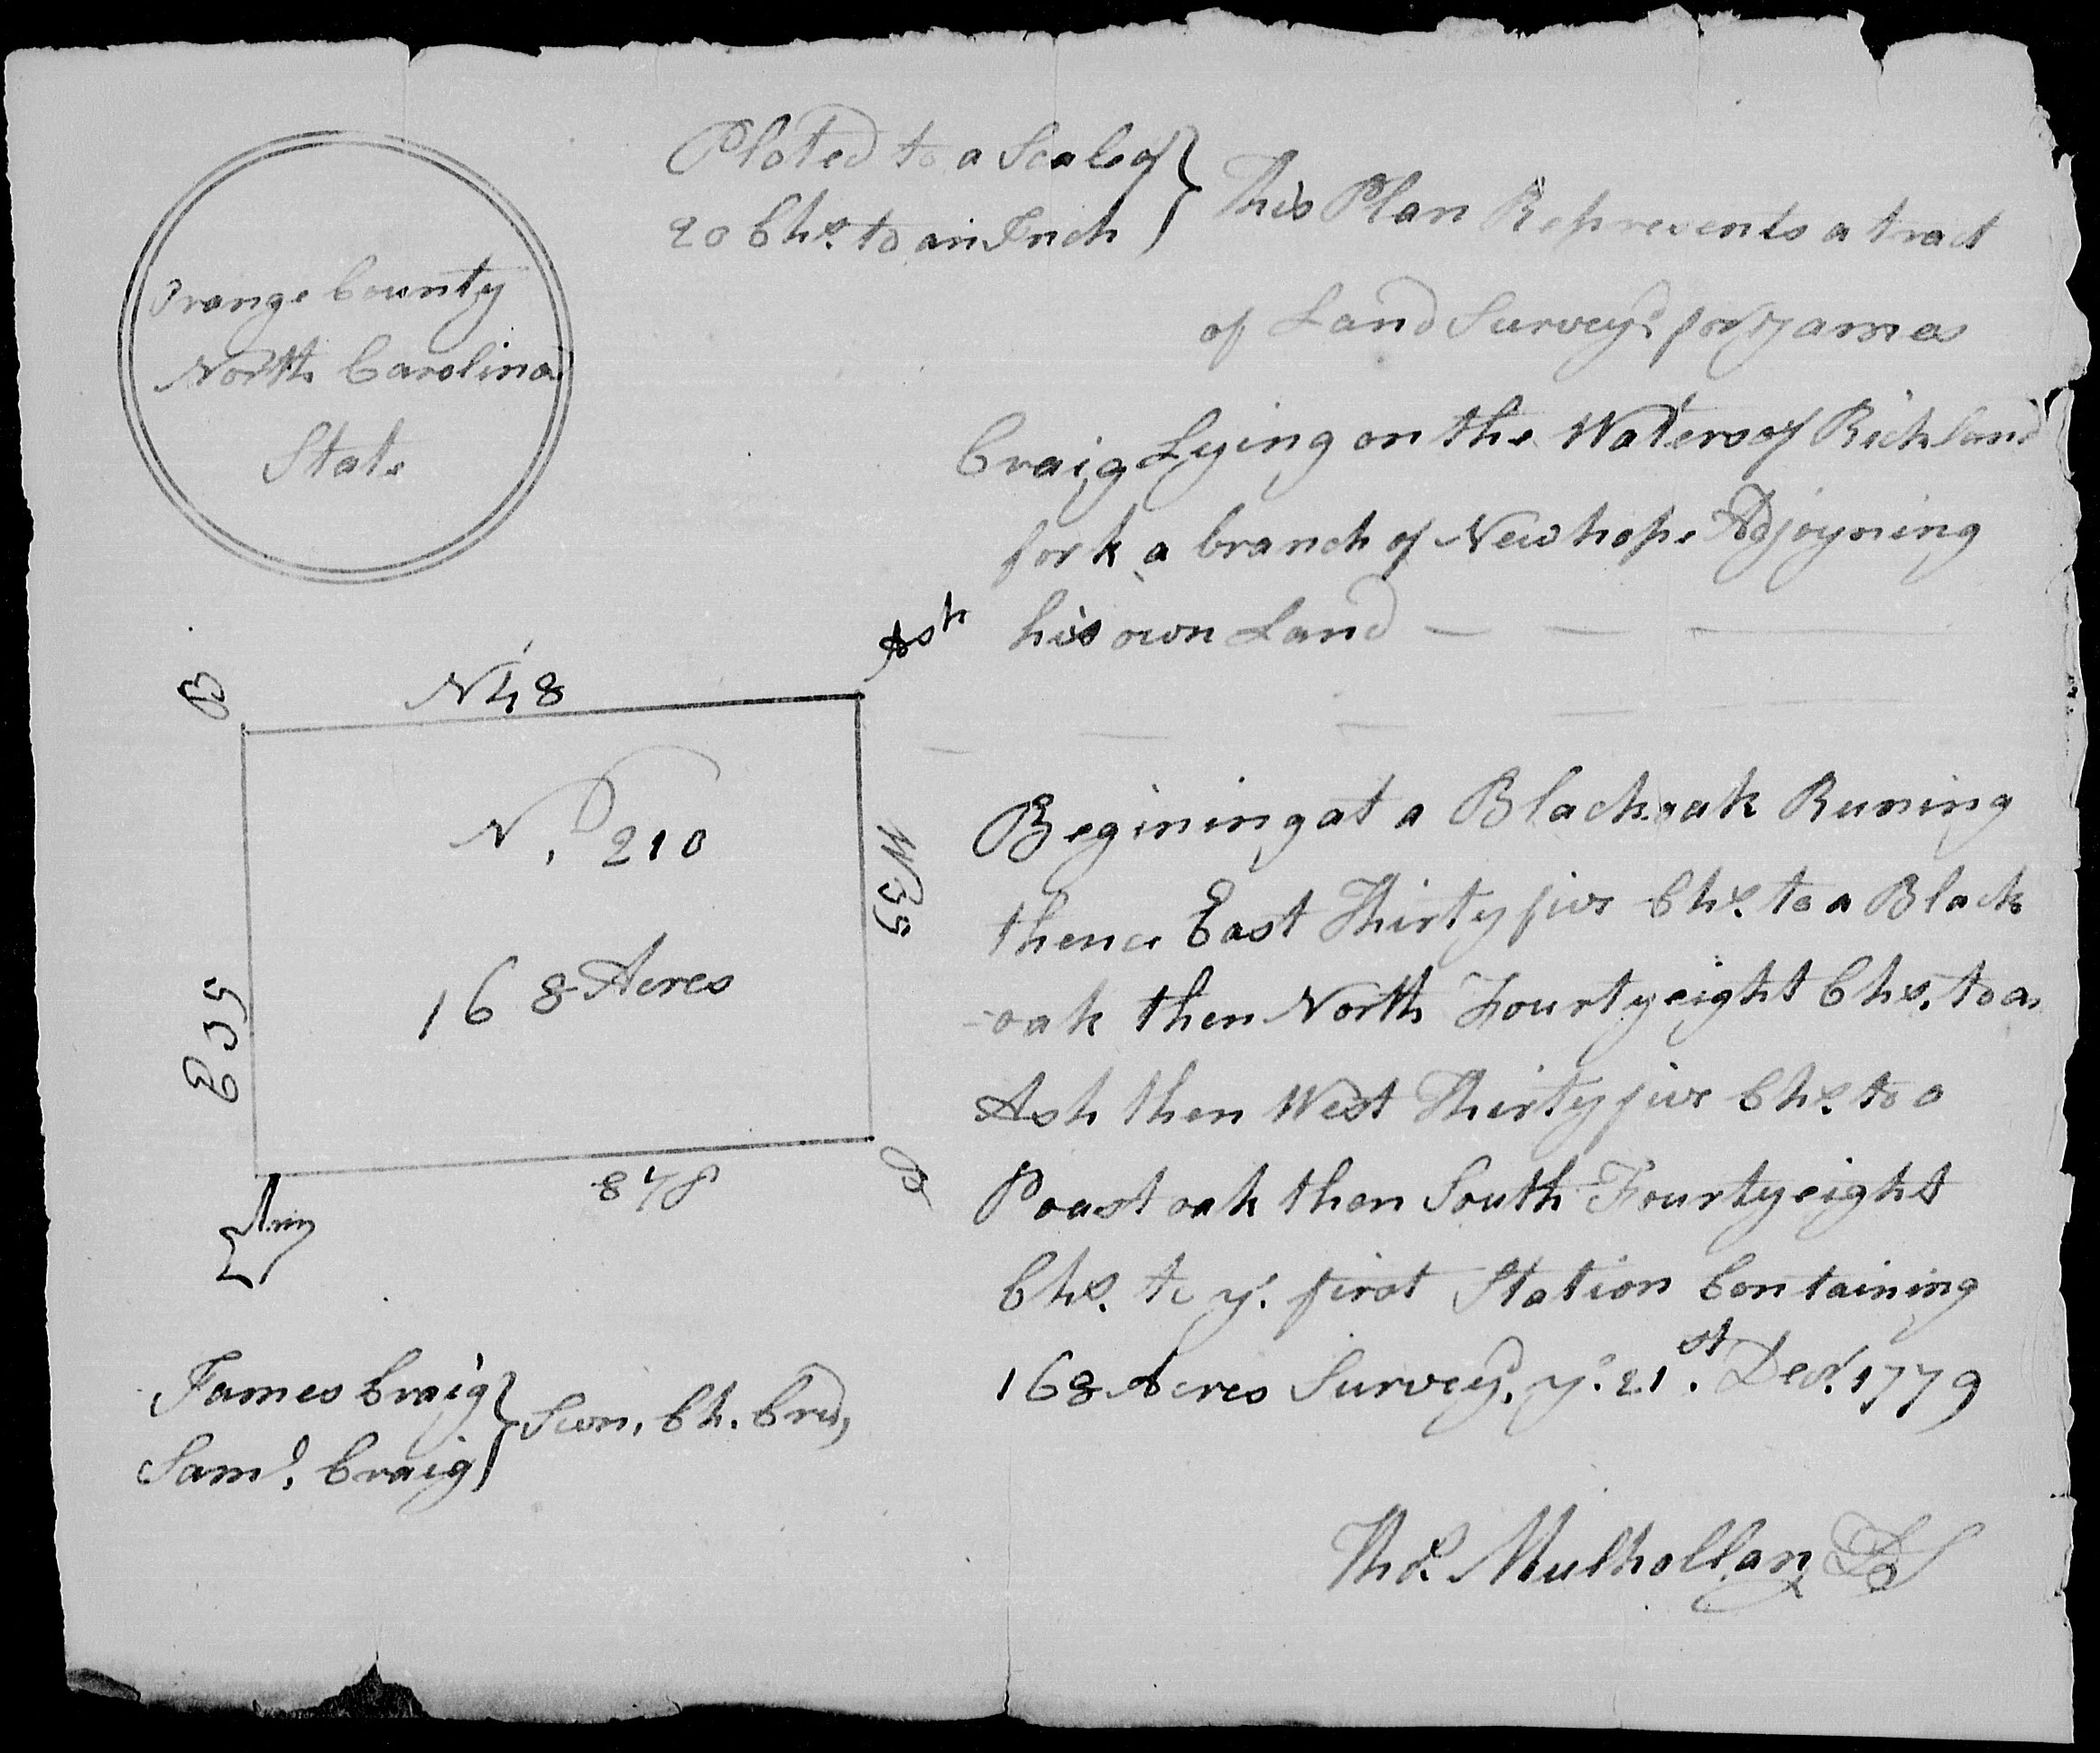 Orange County
North Carolina
State
Ploted to a Scale of
20 Chs. to an Inch
This Plan Represents a tract
of Land Survey.d for James
Craig Lying on the Waters of Richland
fork a branch of Newhope Adjoyning
his own Land
Ash
B
N 48
N. 210
168 Acres
W 35
E 35
S 48
Begining at a Black oak Runing
thence East Thirty five Chs. to a Black
oak then North Fourty eight Chs. to a
Ash then West Thirty five Chs. to a
Poast oak then South Fourty eight
Chs. to y.e first Station Containing
168 Acres Survey.d y.e 21.st Decr. 1779
James Craig
Saml. Craig
Swon. Ch. Crs.
Thos. Mulhollan DS